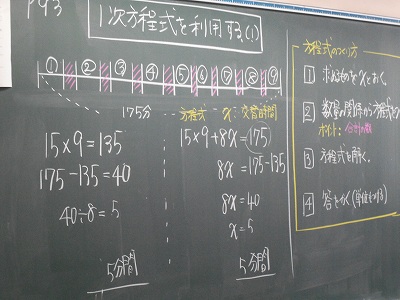 P93
1次方程式を利用する(1)
① ② ③ ④ ⑤ ⑥ ⑦ ⑧ ⑨
175分
15×9=135
175-135=40
40÷8=5
5分間
方程式 x:交替時間
15×9+8x=175
8x=175-135
8x=40
x=5
5分間
方程式のつくり方
1 求めるものをxとおく。
2 数量の関係から方程式を
ポイント:
3 方程式を解く。
4 答をかく(単位をつける)